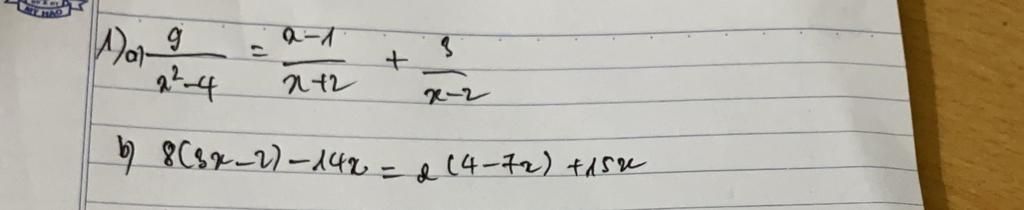 MỸ HẢO
1) a) 9/(x²-4) = (x-1)/(x+2) + 3/(x-2)
b) 8(3x-2) - 14x = 2(4-7x) + 15x